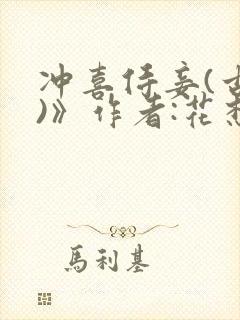 冲喜侍妾(
)》作者:花
馬利基